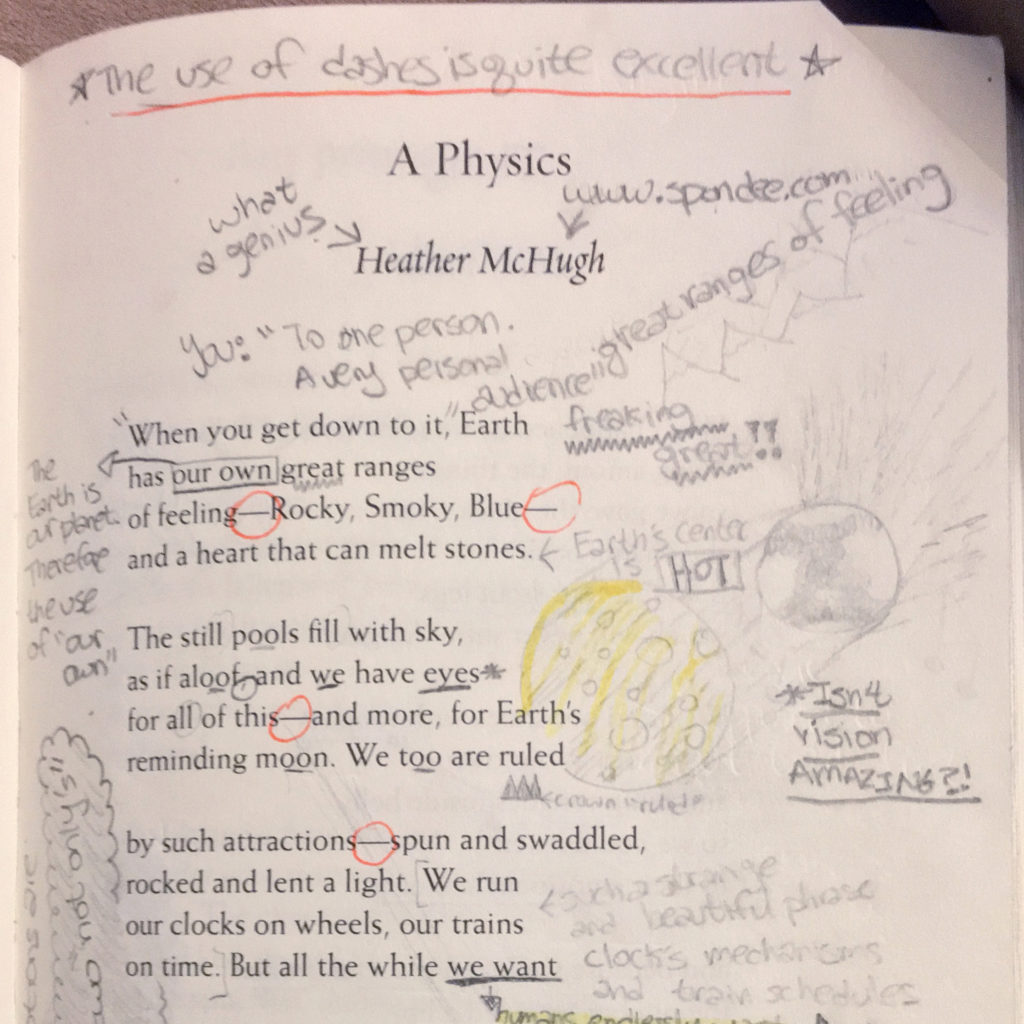 *The use of dashes is quite excellent ☆
A Physics
what
a genius
www.spondee.com
Heather McHugh
You: "To one person.
A very personal
audience"
"great ranges of feeling
freaking
great!??
"When you get down to it," Earth
has our own great ranges
of feeling—Rocky, Smoky, Blue—
and a heart that can melt stones.
The
Earth is
our planet.
Therefore
the use
of "our
own"
Earth's center
is HOT
The still pools fill with sky,
as if aloof, and we have eyes*
for all of this—and more, for Earth's
reminding moon. We too are ruled
crown "ruled"
*Isn't
vision
AMAZING?!
by such attractions—spun and swaddled,
rocked and lent a light. We run
our clocks on wheels, our trains
on time. But all the while we want
such a strange
and beautiful phrase
clock's mechanisms
and train schedules
humans endlessly want